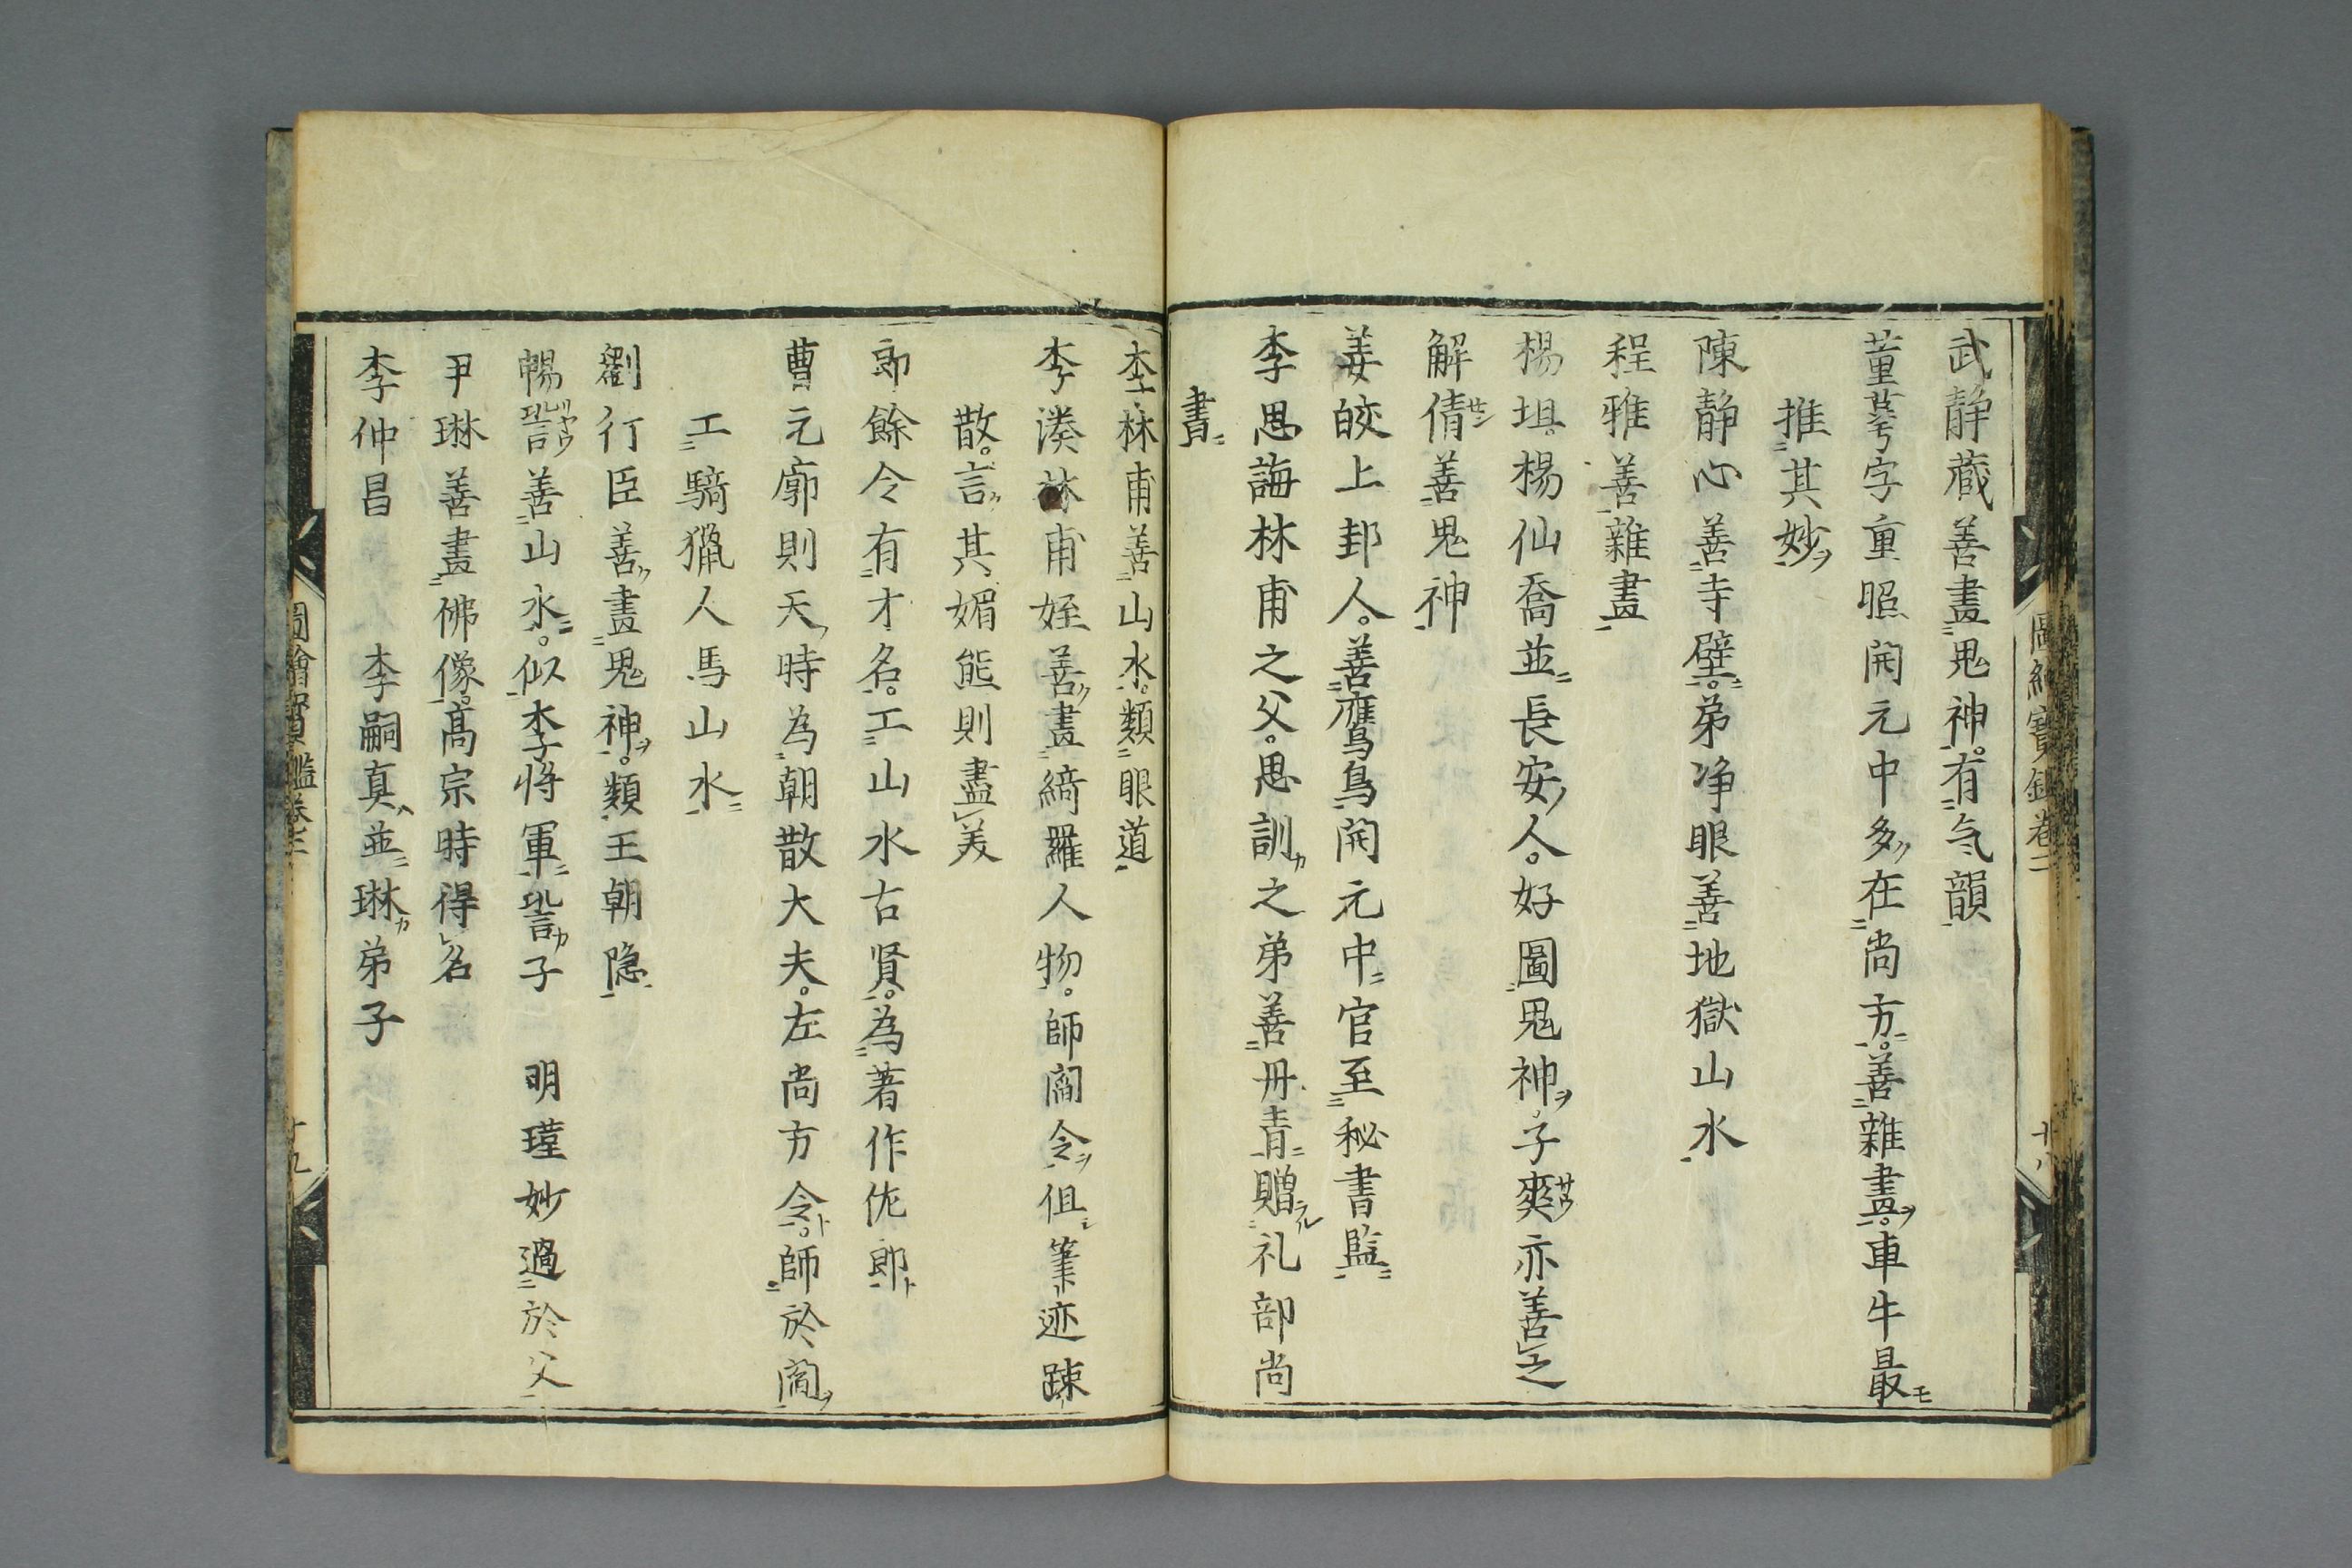 武静藏善畫鬼神有气韻
董萼字重照開元中多在尚方善雜畫車牛最
推其妙
陳静心善寺壁弟净眼善地獄山水
程雅善雜畫
楊坦楊仙喬並長安人好圖鬼神子爽亦善之
解倩善鬼神
姜皎上邽人善鷹鳥開元中官至秘書監
李思誨林甫之父思訓之弟善丹青贈礼部尚
書
李林甫善山水類眼道
李湊林甫姪善畫綺羅人物師閻令但筆迹踈
散言其媚態則盡美
郎餘令有才名工山水古賢為著作佐郎
曹元廓則天時為朝散大夫左尚方令師於閻
工騎獵人馬山水
劉行臣善畫鬼神類王朝隐
暢善山水似李將軍子 明瑾妙過於父
尹琳善畫佛像髙宗時得名
李仲昌 李嗣真並琳弟子
圖繪寳鑑卷二
十九